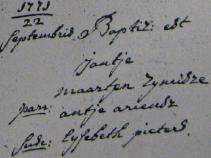 1773
22
Septembris Baptiz: est
jantje
maarten Zyneidze
par: antje arendz
Susc: Lysebeth pieterd.